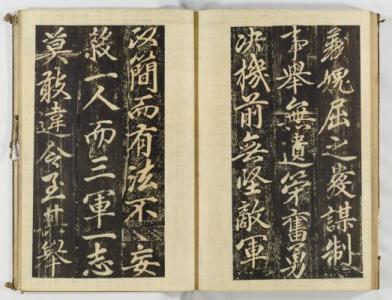 義愧屈之發謀制
事舉無遺策奮勇
決機前無堅敵軍
政簡而有法不妄
殺一人而三軍一志
莫敢違令至其舉